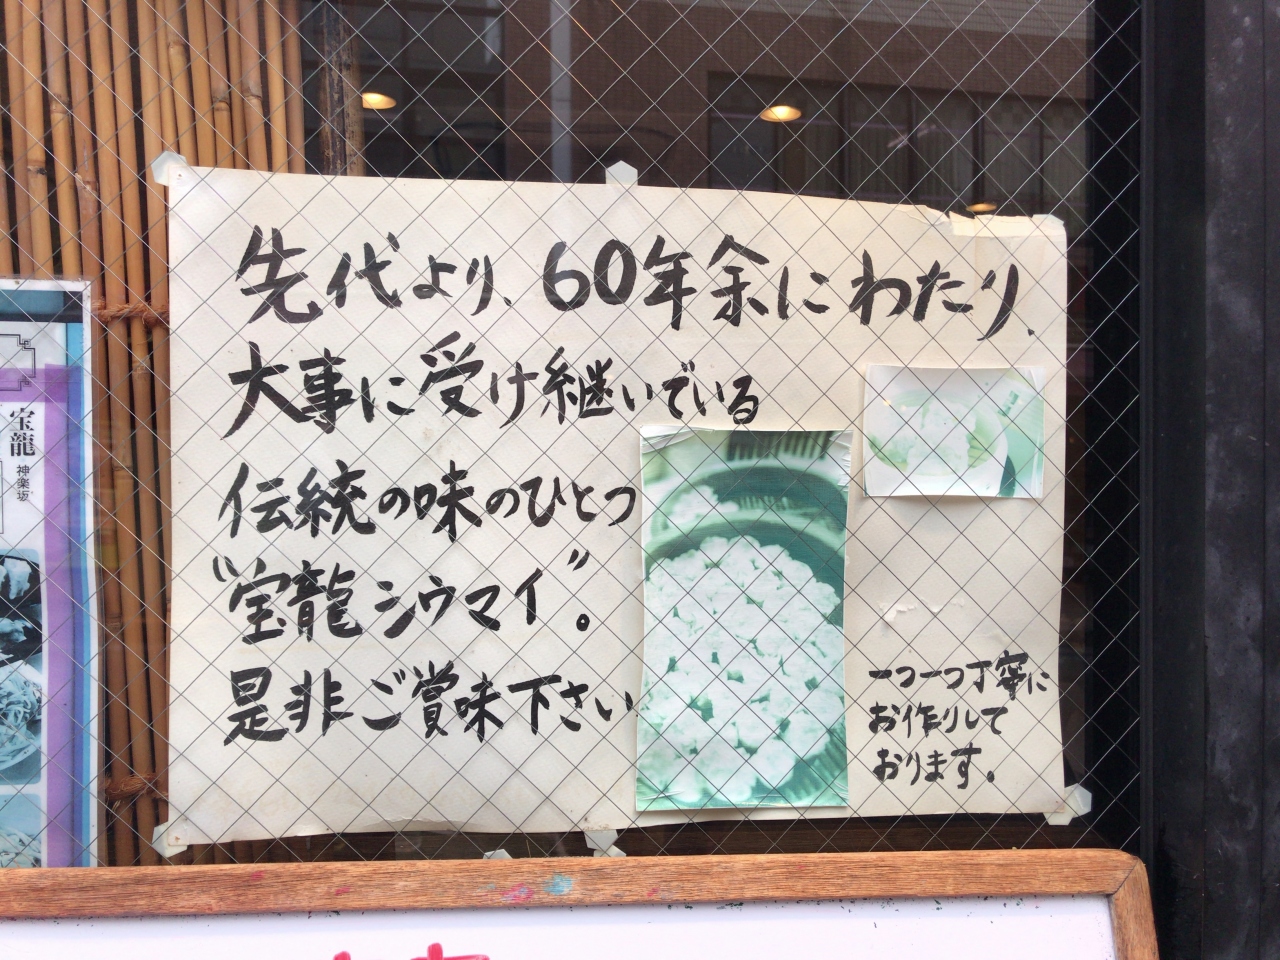 先代より、60年余にわたり、
大事に受け継いでいる
伝統の味のひとつ
"宝龍シウマイ"。
是非ご賞味下さい
一つ一つ丁寧に
お作りして
おります。
宝龍
神楽坂